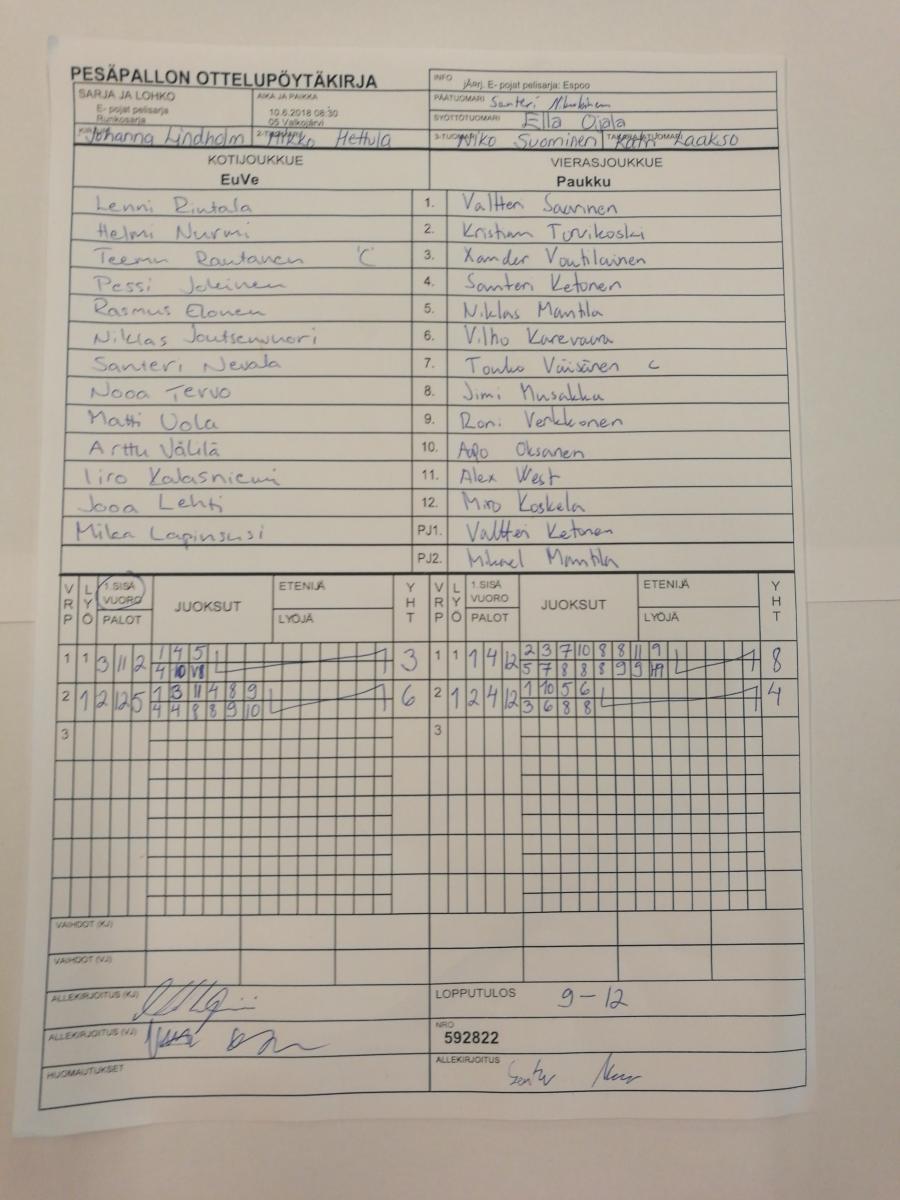 PESÄPALLON OTTELUPÖYTÄKIRJA
INFO jÄrj. E- pojat pelisarja: Espoo
SARJA JA LOHKO
E- pojat pelisarja
Runkosarja
AIKA JA PAIKKA
10.6.2018 08:30
05 Valkojärvi
PÄÄTUOMARI Santeri
SYÖTTÖTUOMARI Ella Ojala
Johanna Lindholm
Mikko Hettula
3-TUOMARI Niko Suominen
TAKARAJATUOMARI Katri Laakso
KOTIJOUKKUE
EuVe
VIERASJOUKKUE
Paukku
Lenni Rintala 1. Valtteri Saarinen
Helmi Nurmi 2. Kristian Turvikoski
Teemu Rautanen C 3. Xander Voutilainen
Pessi Jokinen 4. Santeri Ketonen
Rasmus Elonen 5. Niklas Mantila
Niklas Joutsenvuori 6. Vilho Karevaara
Santeri Nevala 7. Touko Väisänen C
Nooa Tervo 8. Jimi Musakka
Matti Uola 9. Roni Verkkonen
Arttu Välilä 10. Aapo Oksanen
Iiro Kalasniemi 11. Alex West
Jooa Lehti 12. Miro Koskela
Mika Lapinsusi PJ1. Valtteri Ketonen
PJ2. Mikael Mantila
VRP LYÖ 1.SISÄ VUORO PALOT JUOKSUT ETENIJÄ LYÖJÄ YHT VRP LYÖ 1.SISÄ VUORO PALOT JUOKSUT ETENIJÄ LYÖJÄ YHT
1 1 3 11 2 1 4 5 3 1 1 1 4 12 2 3 7 10 8 8 11 9 8
4 10 5 7 8 8 8 9 9
2 1 2 12 5 1 3 11 4 8 9 6 2 1 2 4 12 1 10 5 6 4
4 4 8 8 9 10 3 6 8 8
3 3
VAIHDOT (KJ)
VAIHDOT (VJ)
ALLEKIRJOITUS (KJ)
LOPPUTULOS 9-12
ALLEKIRJOITUS (VJ)
NRO
592822
HUOMAUTUKSET
ALLEKIRJOITUS